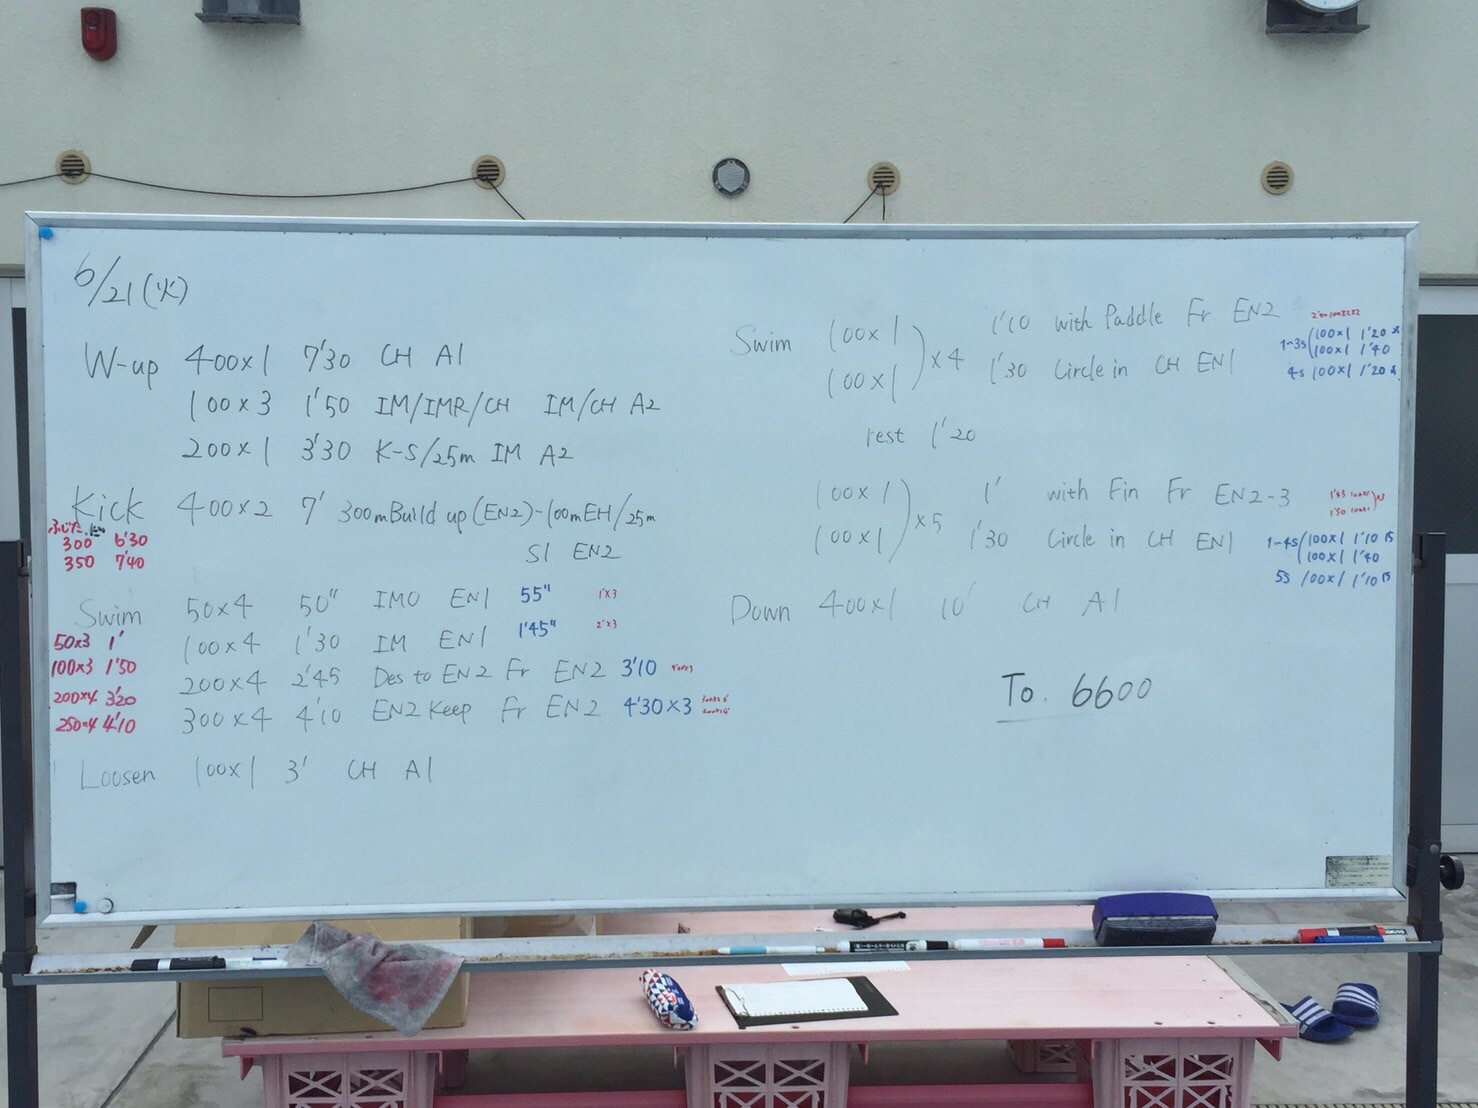 6/21(火)
W-up 400×1 7'30 CH A1
100×3 1'50 IM/IMR/CH IM/CH A2
200×1 3'30 K-S/25m IM A2
Kick 400×2 7' 300mBuild up(EN2)-100mEH/25m
S1 EN2
ふじた
300 6'30
350 7'40
Swim 50×4 50" IMO EN1 55" 1'×3
100×4 1'30 IM EN1 1'45" 2'×3
200×4 2'45 Des to EN2 Fr EN2 3'10
300×4 4'10 EN2 Keep Fr EN2 4'30×3
50×3 1'
100×3 1'50
200×4 3'20
250×4 4'10
Loosen 100×1 3' CH A1
Swim (100×1 1'10 with Paddle Fr EN2
(100×1 )×4 1'30 Circle in CH EN1
1-3s (100×1 1'20
(100×1 1'40
4s 100×1 1'20
rest 1'20
(100×1 1' with Fin Fr EN2-3
(100×1 )×5 1'30 Circle in CH EN1
1'45 100×1
1'50 100×1 )×3
1-4s (100×1 1'10 15
(100×1 1'40
5s 100×1 1'10 15
Down 400×1 10' CH A1
To. 6600